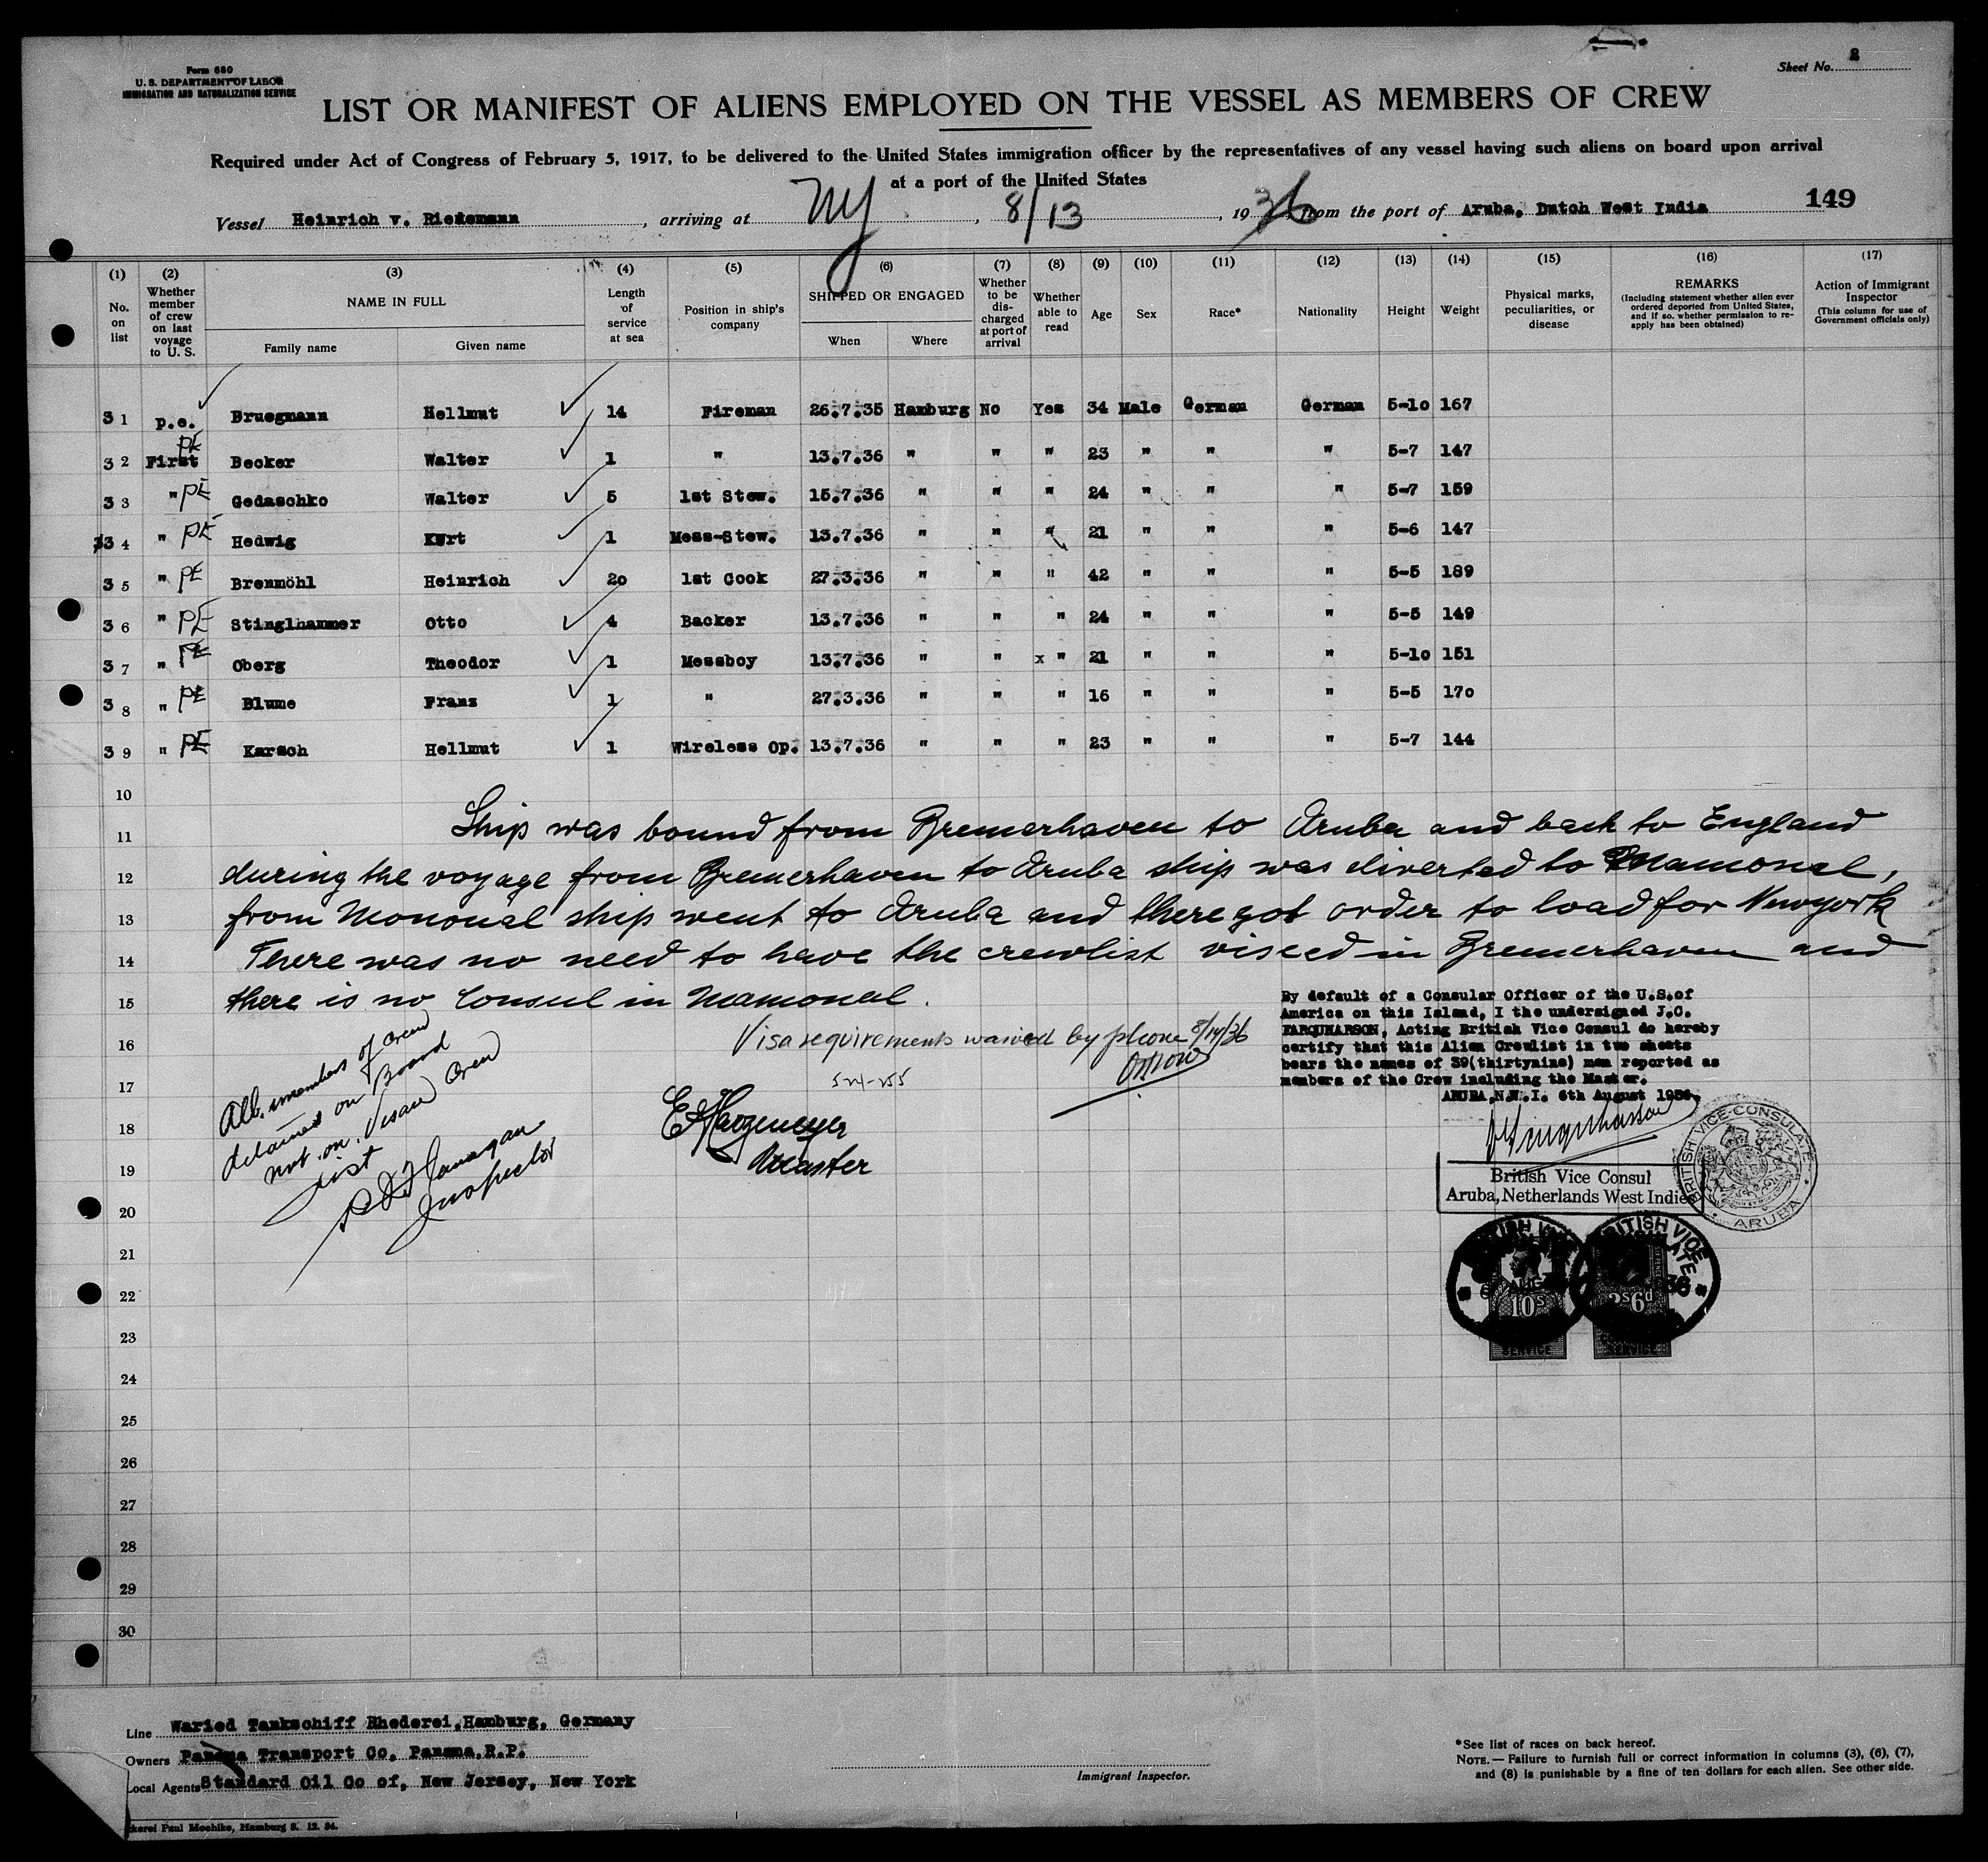 Form 680
U. S. DEPARTMENT OF LABOR
IMMIGRATION AND NATURALIZATION SERVICE
Sheet No. 2
LIST OR MANIFEST OF ALIENS EMPLOYED ON THE VESSEL AS MEMBERS OF CREW
Required under Act of Congress of February 5, 1917, to be delivered to the United States immigration officer by the representatives of any vessel having such aliens on board upon arrival
at a port of the United States
Vessel Heinrich v. Riedemann, arriving at NY, 8/13, 1936, from the port of Aruba, Dutch West India 149
(1) (2) (3) (4) (5) (6) (7) (8) (9) (10) (11) (12) (13) (14) (15) (16) (17)
No. on list
Whether member of crew on last voyage to U. S.
NAME IN FULL
Family name
Given name
Length of service at sea
Position in ship's company
SHIPPED OR ENGAGED
When
Where
Whether to be discharged at port of arrival
Whether able to read
Age
Sex
Race*
Nationality
Height
Weight
Physical marks, peculiarities, or disease
REMARKS
(Including statement whether alien ever ordered deported from United States, and if so, whether permission to re-apply has been obtained)
Action of Immigrant Inspector
(This column for use of Government officials only)
31 p.e. Bruegmann Hellmut 14 Fireman 26.7.35 Hamburg No Yes 34 Male German German 5-10 167
32 First PE Becker Walter 1 " 13.7.36 " " " 23 " " " 5-7 147
33 " PE Gedaschko Walter 5 1st Stew. 15.7.36 " " " 24 " " " 5-7 159
34 " PE Hedwig Kurt 1 Mess-Stew. 13.7.36 " " " 21 " " " 5-6 147
35 " PE Brenmöhl Heinrich 20 1st Cook 27.3.36 " " " 42 " " " 5-5 189
36 " PE Stinglhammer Otto 4 Backer 13.7.36 " " " 24 " " " 5-5 149
37 " PE Oberg Theodor 1 Messboy 13.7.36 " " x " 21 " " " 5-10 151
38 " PE Blume Franz 1 " 27.3.36 " " " 16 " " " 5-5 170
39 " PE Karsch Hellmut 1 Wireless Op. 13.7.36 " " " 23 " " " 5-7 144
10
11 Ship was bound from Bremerhaven to Aruba and back to England
12 during the voyage from Bremerhaven to Aruba ship was diverted to Mamonal,
13 from Mononal ship went to Aruba and there got order to load for Newyork
14 There was no need to have the crewlist viseed in Bremerhaven and
15 there is no Consul in Mamonal.
16 Visa requirements waived by phone 8/14/36
17
18
19
20
21
22
23
24
25
26
27
28
29
30
All members of crew
detained on Board
not on Visaed Crew
List
Flanagan
Inspector
Master
By default of a Consular Officer of the U.S.of
America on this Island, I the undersigned J.C.
FARQUHARSON, Acting British Vice Consul do hereby
certify that this Alien Crewlist in two sheets
bears the names of 39(thirtynine) men reported as
members of the Crew including the Master.
ARUBA,N.W.I. 6th August 1936.
British Vice Consul
Aruba, Netherlands West Indies
BRITISH VICE-CONSULATE
ARUBA
BRITISH VICE
10s
2s6d
SERVICE
SERVICE
Line Waried Tankschiff Rhederei,Hamburg, Germany
Owners Panama Transport Co, Panama,R.P.
Local Agents Standard Oil Co of, New Jersey, New York
Immigrant Inspector.
*See list of races on back hereof.
NOTE.—Failure to furnish full or correct information in columns (3), (6), (7),
and (8) is punishable by a fine of ten dollars for each alien. See other side.
Paul Moehlke, Hamburg 8. 12. 34.